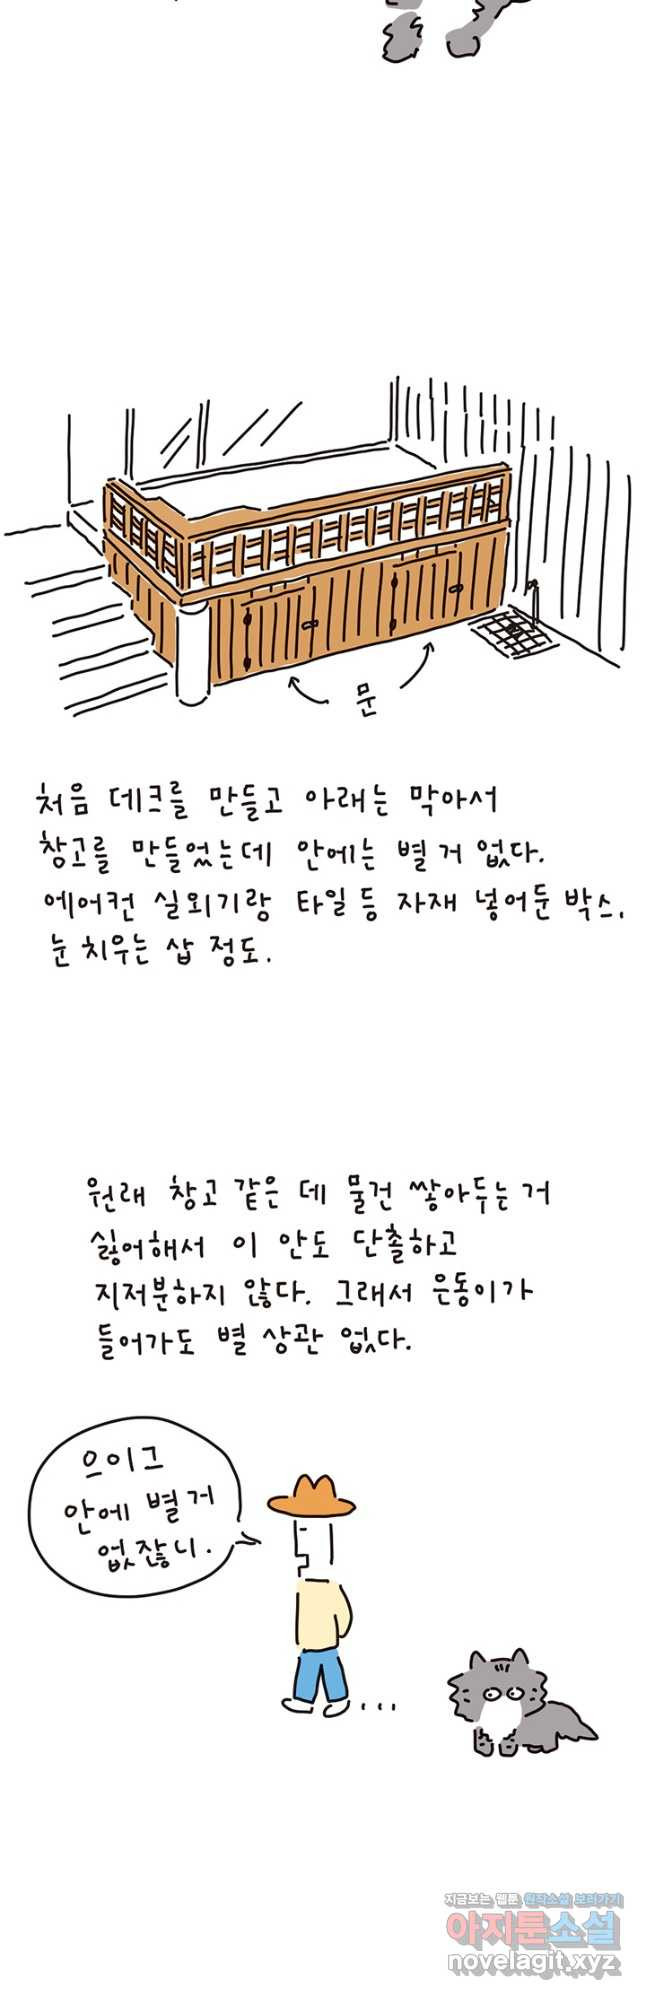 문
처음 데크를 만들고 아래는 막아서
창고를 만들었는데 안에는 별 거 없다.
에어컨 실외기랑 타일 등 자재 넣어둔 박스,
눈 치우는 삽 정도.
원래 창고 같은 데 물건 쌓아두는 거
싫어해서 이 안도 단촐하고
지저분하지 않다. 그래서 은동이가
들어가도 별 상관 없다.
으이그
안에 별 거
없잖니.
...
지금보는 웹툰 원작소설 보러가기
아지툰소설
novelagit.xyz